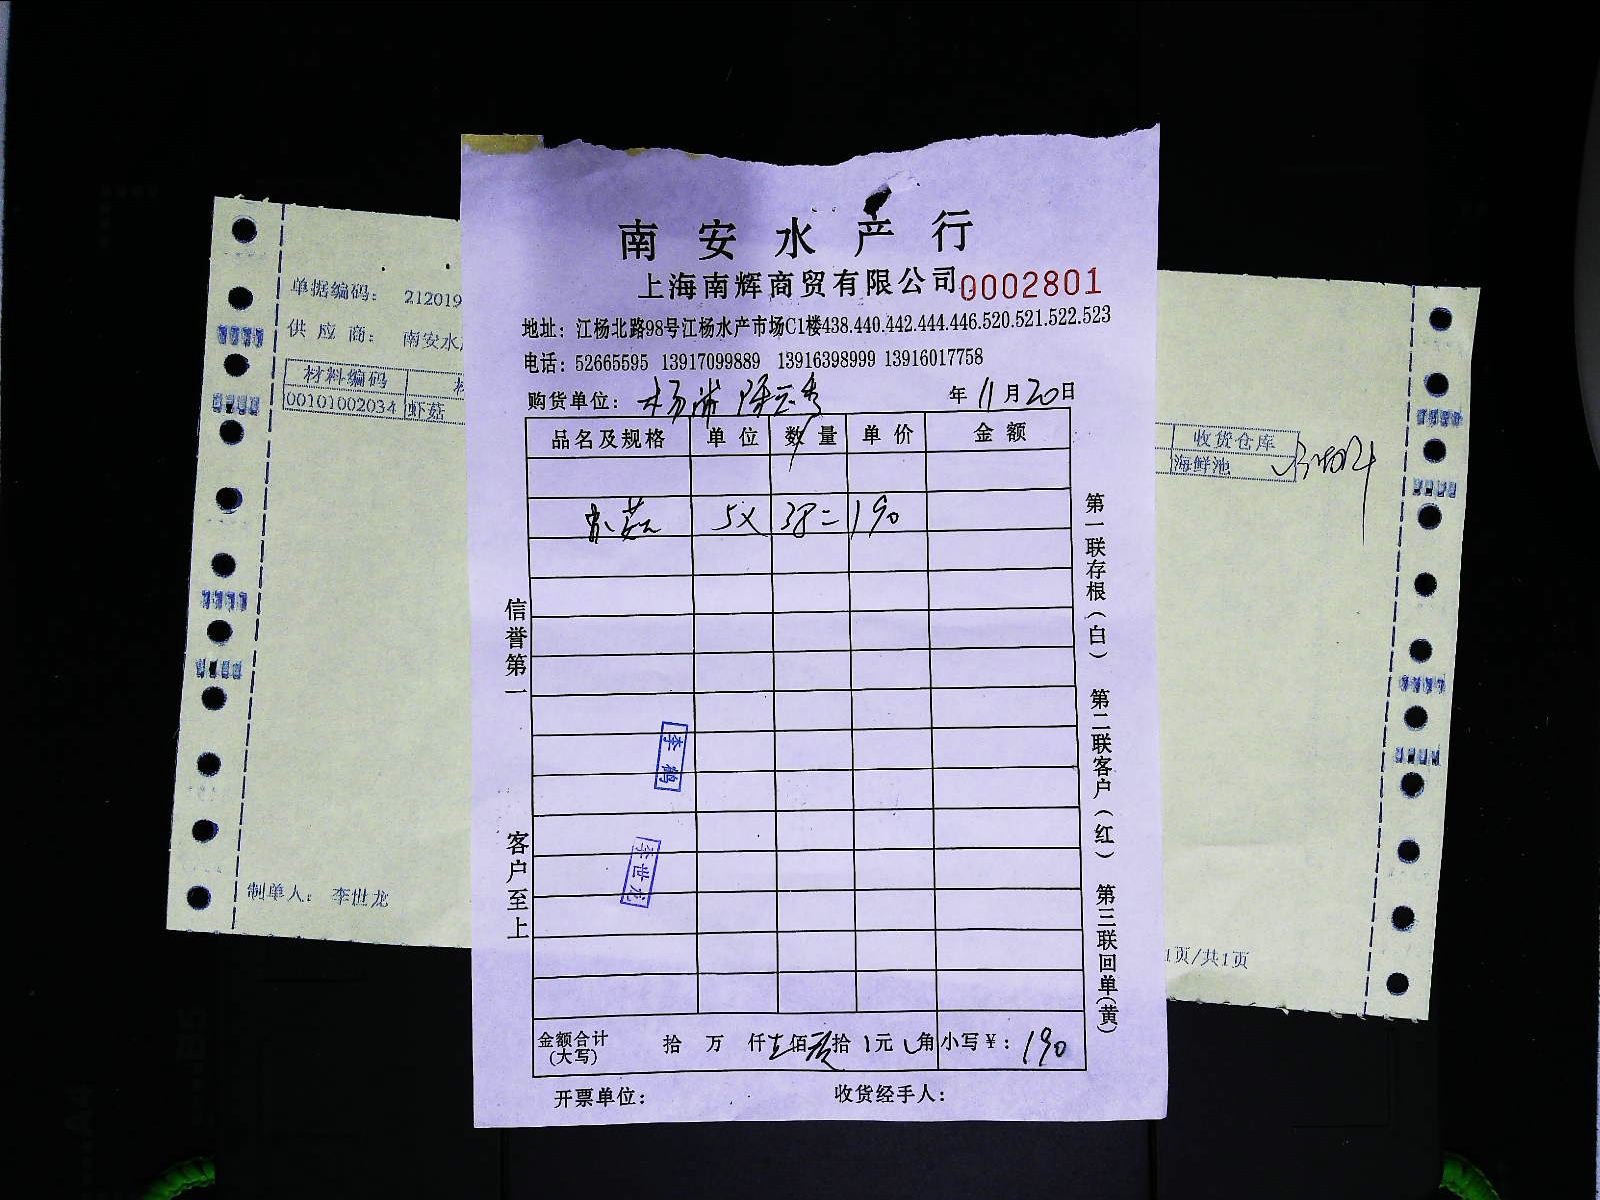 南安水产行
上海南辉商贸有限公司 0002801
地址：江杨北路98号江杨水产市场C1楼438.440.442.444.446.520.521.522.523
电话：52665595 13917099889 13916398999 13916017758
购货单位：杨浦 年11月20日
品名及规格 单位 数量 单价 金额
菇 5X 38= 190
信誉第一
客户至上
第一联存根（白） 第二联客户（红） 第三联回单（黄）
李鹤
李世龙
金额合计（大写） 拾 万 仟 佰 拾 元 角 小写￥：190
开票单位： 收货经手人：
单据编码： 212019
供应商： 南安水
材料编码
00101002034 虾菇
制单人： 李世龙
收货仓库
海鲜池
1页/共1页